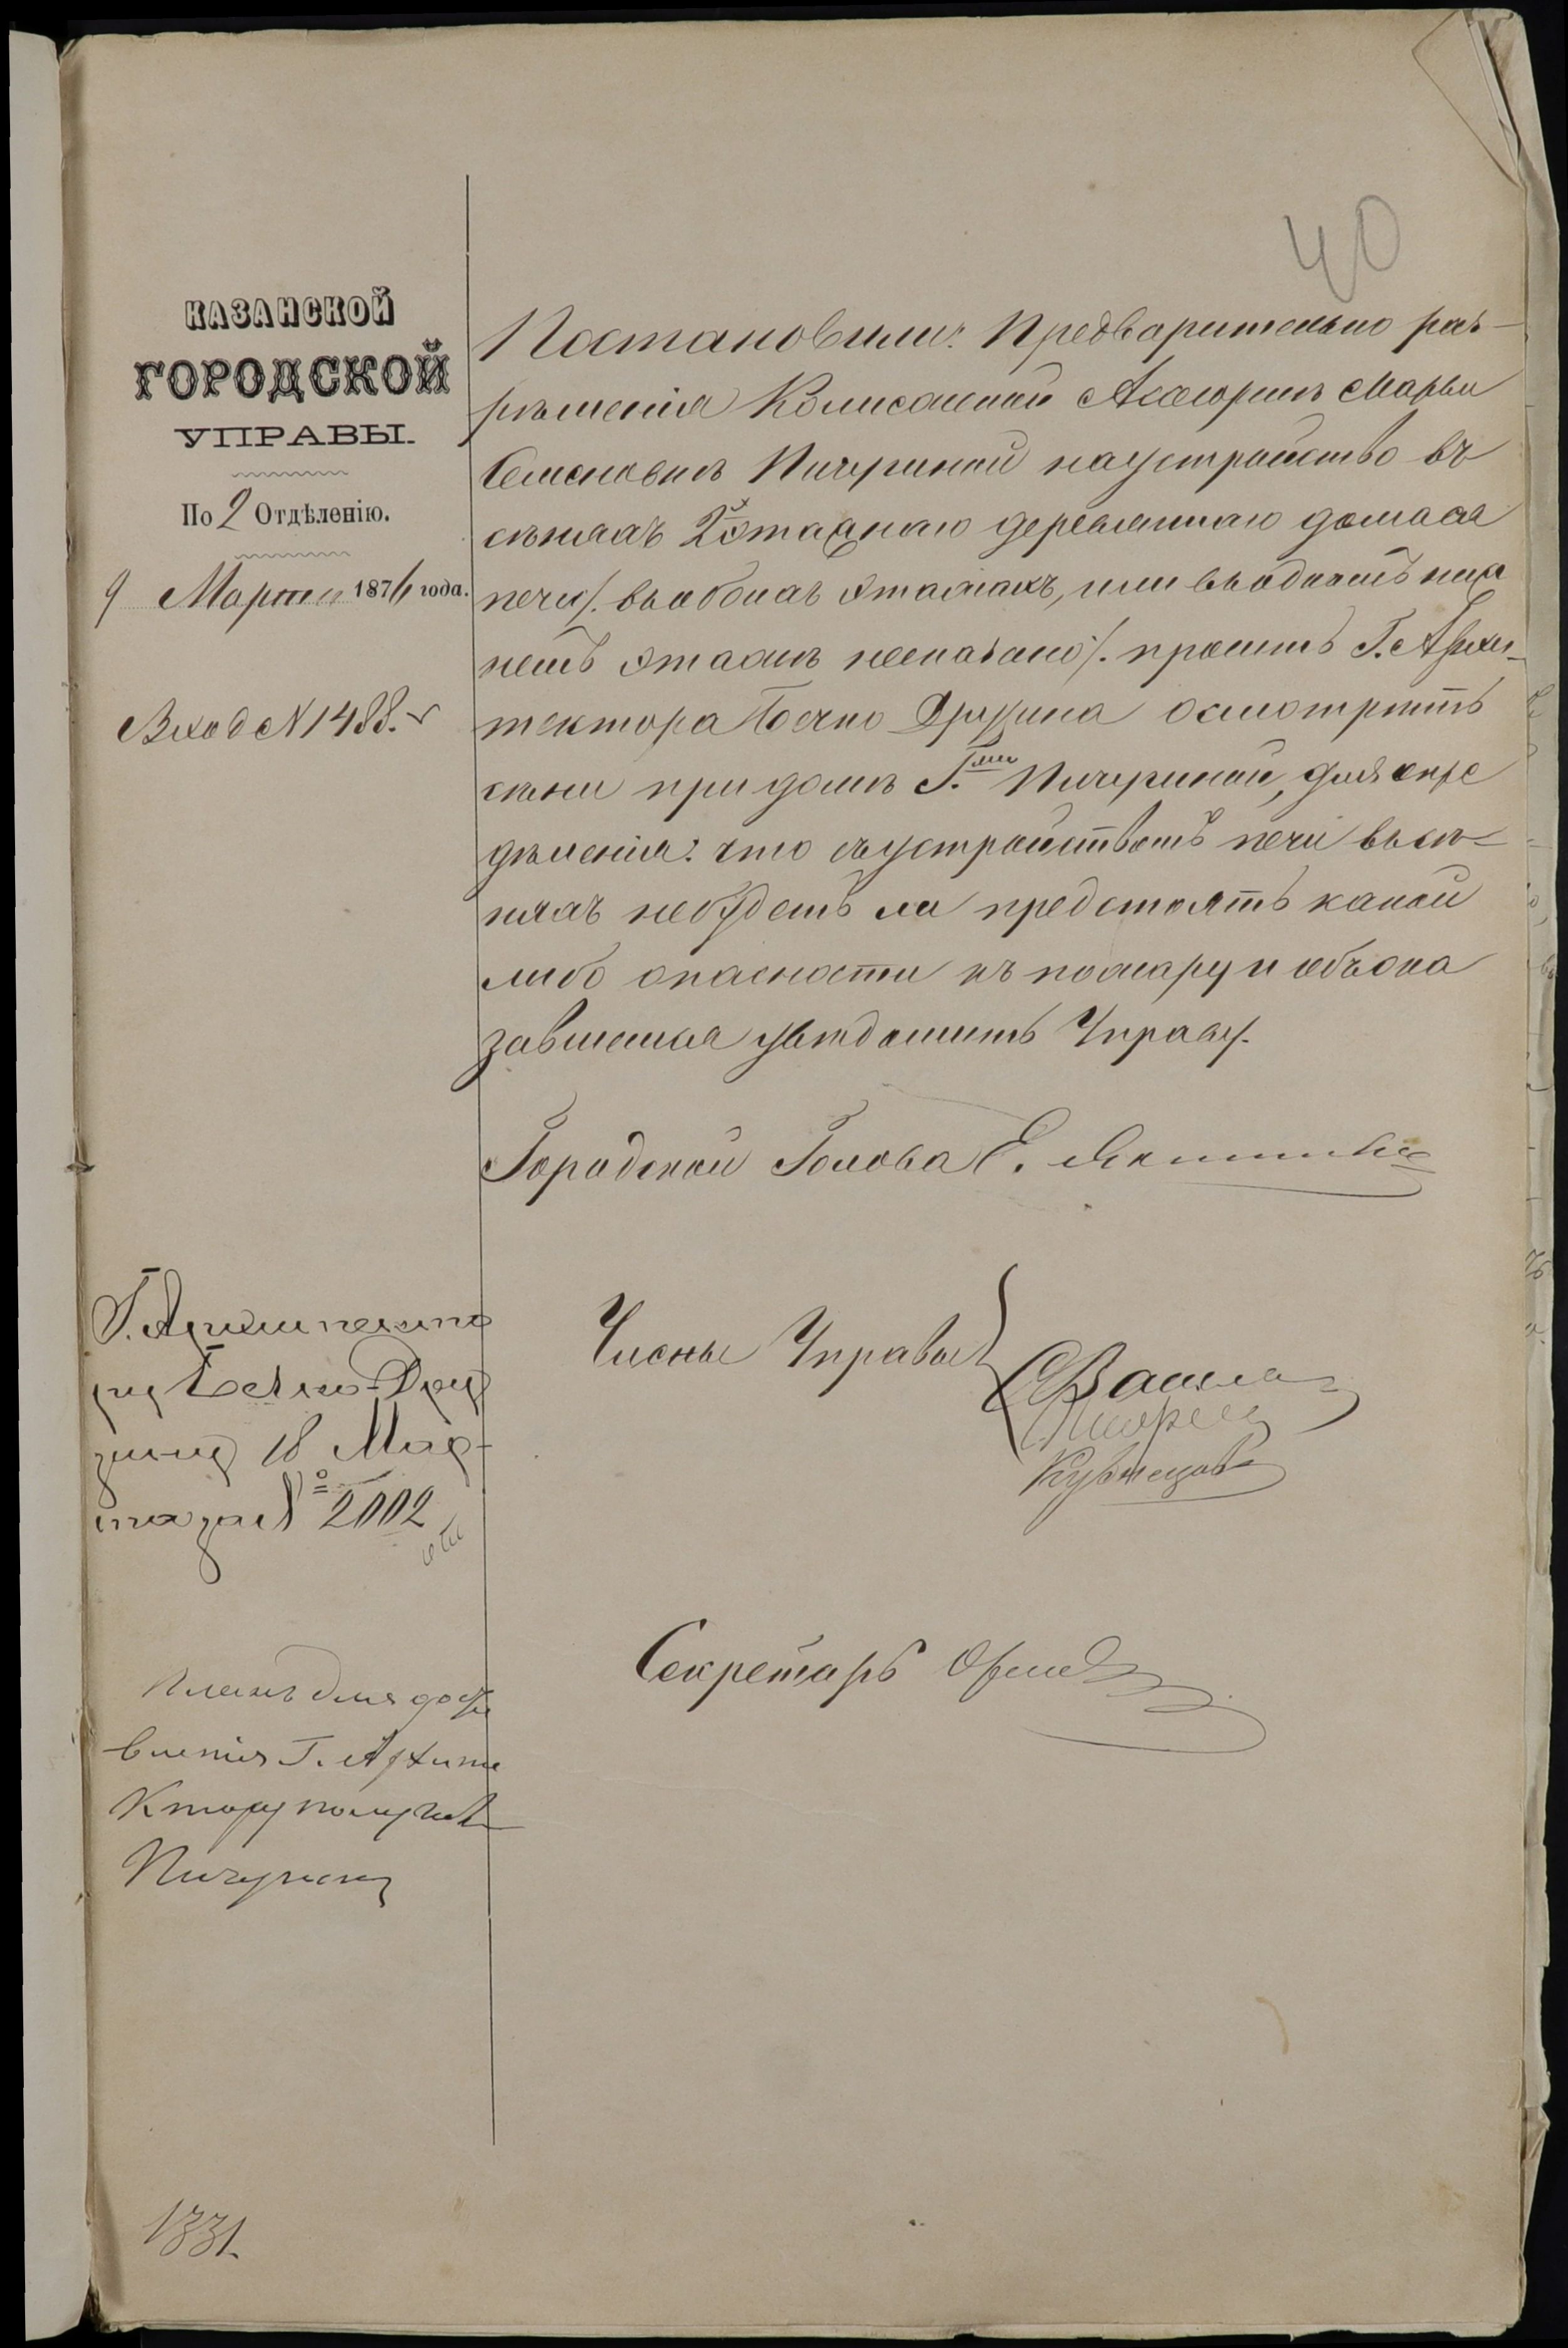 40
КАЗАНСКОЙ
ГОРОДСКОЙ
УПРАВЫ.
По 2 Отдѣленію.
9 Марта 1876 года.
Вход № 1488.
Постановили: Предварительно раз-
рѣшенія Колисской Асесоршѣ Марьи
Семеновнѣ Пичугиной на устройство въ
сѣняхъ 2х этажнаго деревяннаго дома ея
печи /. въ обоихъ этажахъ, или въ одномъ ниж
немъ этажѣ несказано /. просить Г. Архи-
тектора Бечко Друзина осмотрѣть
сѣни при домѣ Г.жи Пичугиной, для опре
дѣленія: что съ устройствомъ печи въ сѣ-
няхъ небудетъ ли предстоять какой
либо опасности къ пожару и объ ока
завшемся увѣдомить Управу.
Городской Голова Е.
Члены Управы
Кузнецовъ
Секретарь
Г. Архитекто
ру Бечко-Дру
зину 18 Мар-
та за № 2002
Планъ для доста
вленія Г. Архите
ктору получилъ
Пичугинъ
1331.